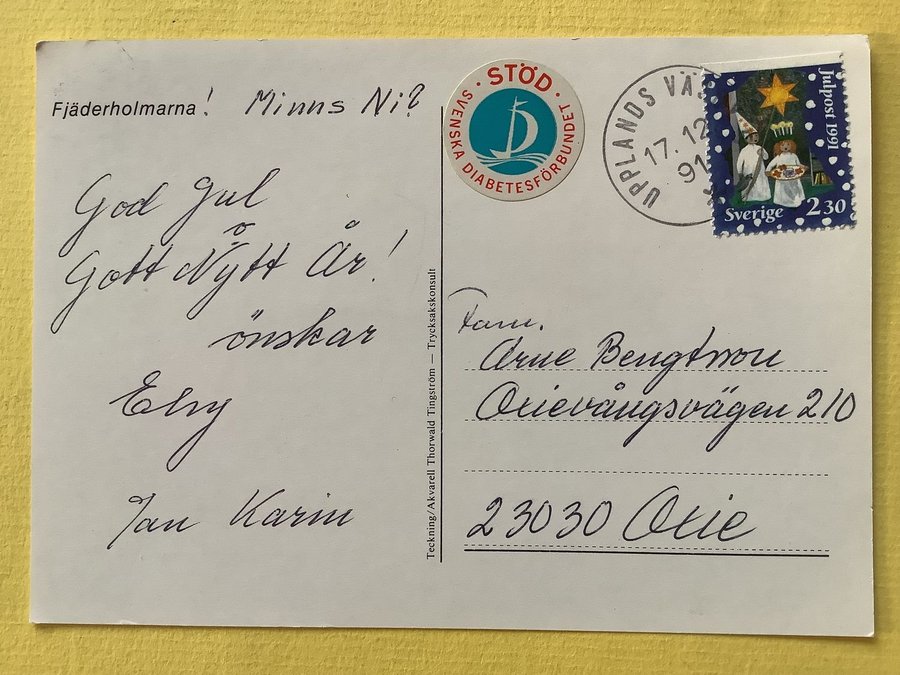 Fjäderholmarna! Minns Ni?
God Jul
o
Gott Nytt År!
önskar
Elsy
Jan Karin
Teckning/Akvarell Thorwald Tingström — Trycksakskonsult
· STÖD ·
SVENSKA DIABETESFÖRBUNDET
UPPLANDS VÄS
17.12
91
Julpost 1991
Sverige 2 30
Fam.
Arne Bengtsson
Oxievångsvägen 210
23030 Oxie